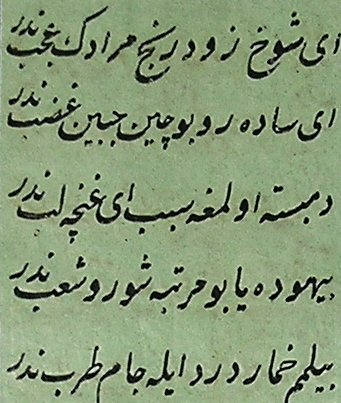 ای شوخ زود رنج مرادك عجب ندر
ای ساده رو بو چین جبین غضب ندر
دمبسته اولمغه سبب ای غنچه لب ندر
بیهوده یا بو مرتبه شور و شعب ندر
بیلمم خمار درد ایله جام طرب ندر